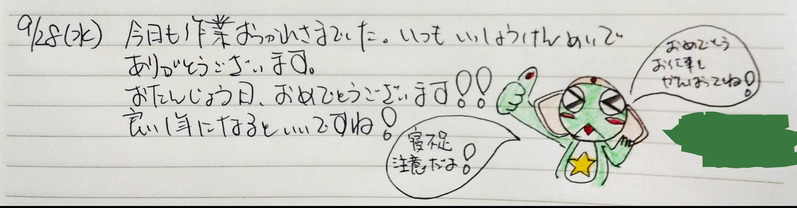 9/28(水) 今日も作業おつかれさまでした。いつもいっしょうけんめいで
ありがとうございます。
おたんじょう日、おめでとうございます!!
良い1年になるといいですね!
おめでとう
お仕事も
がんばってね!
寝不足
注意だよ!